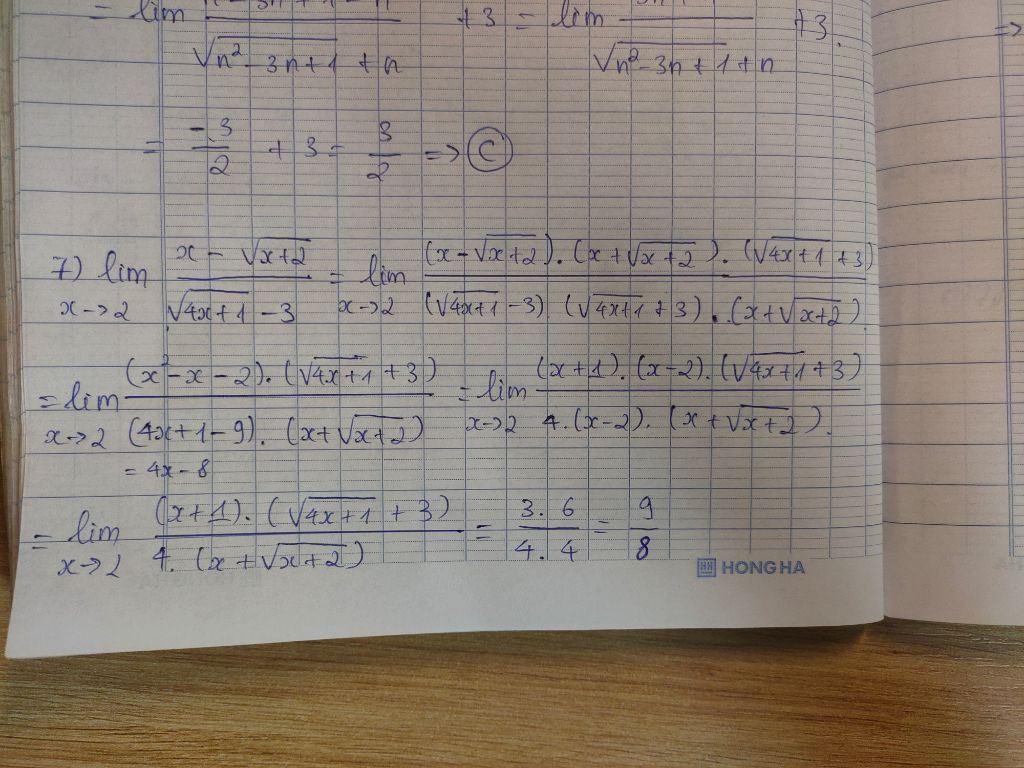 = lim / √(n² - 3n + 1) + n + 3 = lim / √(n² - 3n + 1) + n + 3.
= -3/2 + 3 = 3/2 => C
7) lim x→2 (x - √(x+2)) / (√(4x+1) - 3) = lim x→2 (x - √(x+2)).(x + √(x+2)).(√(4x+1) + 3) / (√(4x+1) - 3).(√(4x+1) + 3).(x + √(x+2))
= lim x→2 (x² - x - 2).(√(4x+1) + 3) / (4x + 1 - 9).(x + √(x+2)) = lim x→2 (x+1).(x-2).(√(4x+1) + 3) / 4.(x-2).(x + √(x+2)).
= 4x - 8
= lim x→2 (x+1).(√(4x+1) + 3) / 4.(x + √(x+2)) = 3.6 / 4.4 = 9/8
HH HONG HA
=>